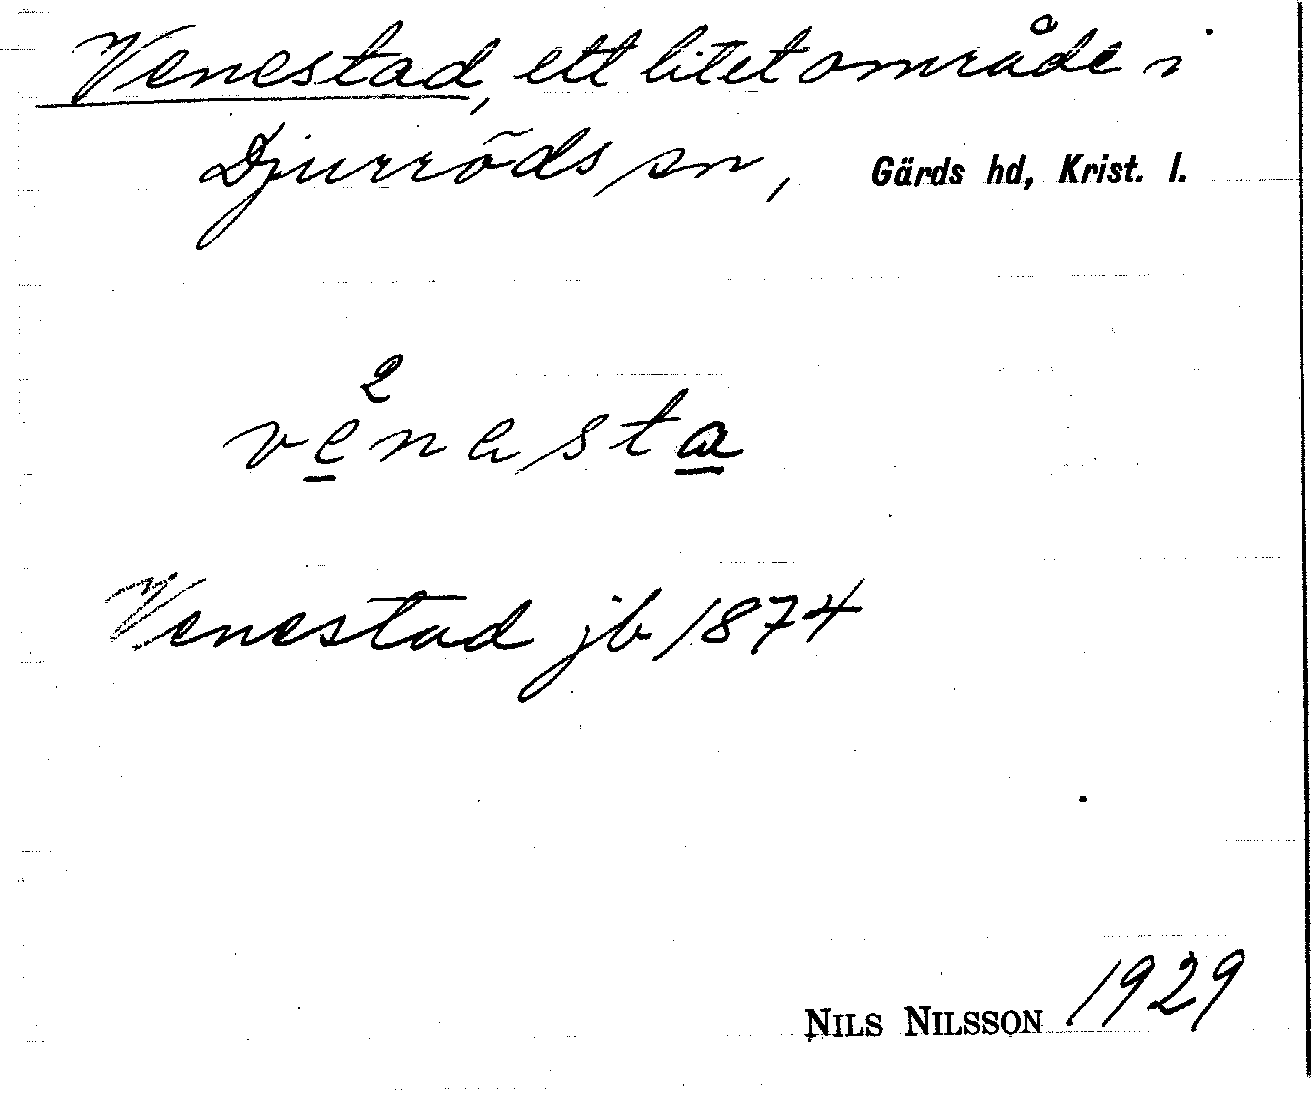 Venestad, ett litet område i
Djurröds sn, Gärds hd, Krist. l.
ve²nasta
Venestad jb 1874
NILS NILSSON 1929